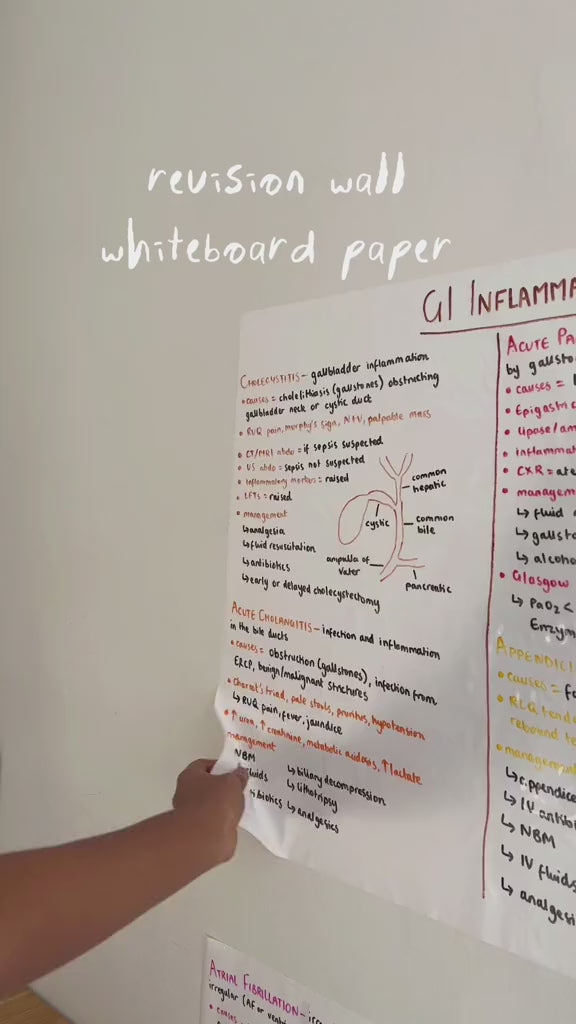 revision wall
whiteboard paper
GI INFLAMMA
CHOLECYSTITIS - gallbladder inflammation
• causes = cholelithiasis (gallstones) obstructing
gallbladder neck or cystic duct
• RUQ pain, murphy's sign, N+V, palpable mass
• CT/MRI abdo = if sepsis suspected
• US abdo = sepsis not suspected
• Inflammatory markers = raised
• LFTs = raised
• management
↳ analgesia
↳ fluid resuscitation
↳ antibiotics
↳ early or delayed cholecystectomy
common
hepatic
cystic
common
bile
ampulla of
Vater
pancreatic
ACUTE CHOLANGITIS - infection and inflammation
in the bile ducts
• causes = obstruction (gallstones), infection from
ERCP, benign/malignant strictures
• Charcot's triad, pale stools, pruritus, hypotension
↳ RUQ pain, fever, jaundice
• ↑ urea, ↑ creatinine, metabolic acidosis, ↑ lactate
management
NBM
fluids
tibiotics
↳ biliary decompression
↳ lithotripsy
↳ analgesics
ACUTE PA
by gallsto
• causes =
• Epigastric
• lipase/am
• inflammat
• CXR = ate
• managem
↳ fluid
↳ gallsto
↳ alcoho
• Glasgow
↳ PaO2 <
Enzym
APPENDICI
• causes = fa
• RLQ tende
rebound te
• management
↳ appendice
↳ IV antibi
↳ NBM
↳ IV fluids
↳ analgesi
ATRIAL FIBRILLATION - irre
irregular (AF or ventri
• causes